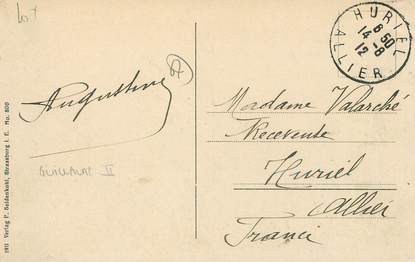 Lot
HURIEL
6 50
14 -8
12
ALLIER
Augustine
GUILLAUME II
Madame Valarché
Receveuse
Huriel
Allier
France
1911 Verlag F. Seidenkohl, Strassburg i. E. No. 800